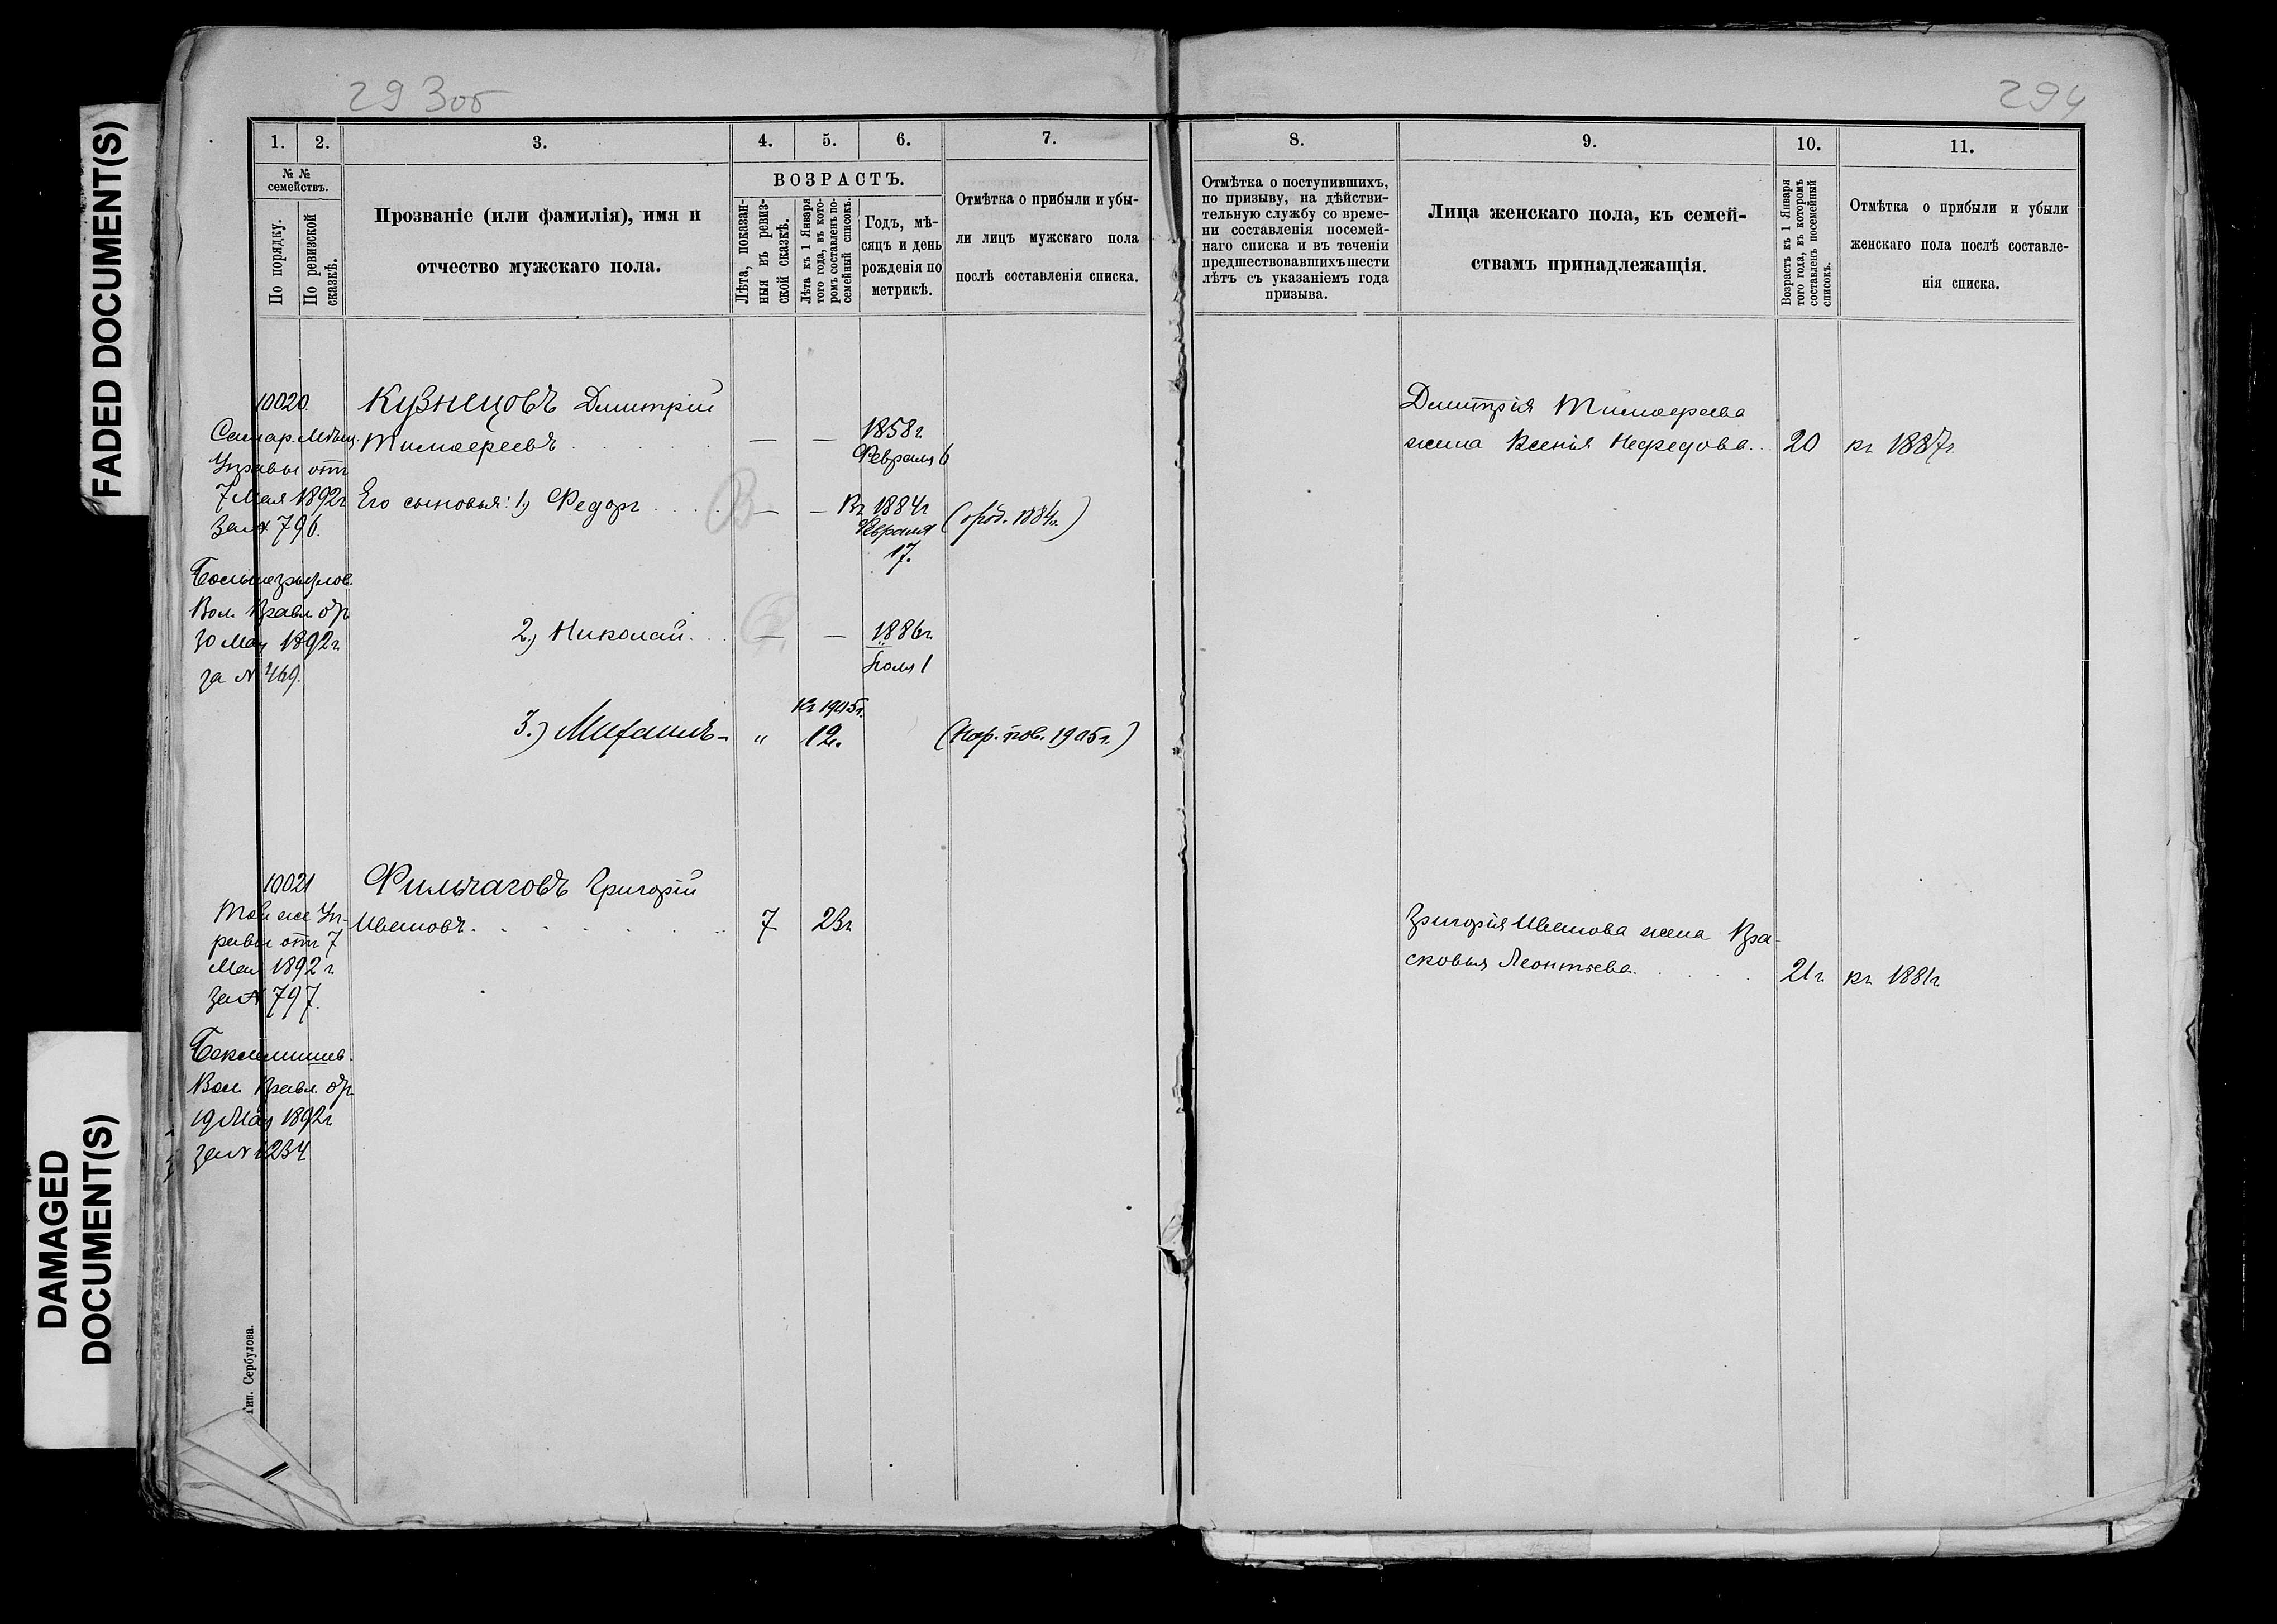 FADED DOCUMENT(S)
DAMAGED
DOCUMENT(S)
293об
294
1.
2.
3.
4.
5.
6.
7.
№ №
семействъ.
По порядку.
По ревизской
сказкѣ.
Прозваніе (или фамилія), имя и
отчество мужскаго пола.
ВОЗРАСТЪ.
Лѣта, показан-
ныя въ ревиз-
ской сказкѣ.
Лѣта къ 1 Января
того года, въ кото-
ромъ составленъ по-
семейный списокъ.
Годъ, мѣ-
сяцъ и день
рожденія по
метрикѣ.
Отмѣтка о прибыли и убы-
ли лицъ мужскаго пола
послѣ составленія списка.
8.
9.
10.
11.
Отмѣтка о поступившихъ,
по призыву, на дѣйстви-
тельную службу со време-
ни составленія посемей-
наго списка и въ теченіи
предшествовавшихъ шести
лѣтъ съ указаніемъ года
призыва.
Лица женскаго пола, къ семей-
ствамъ принадлежащія.
Возрастъ къ 1 Января
того года, въ которомъ
составленъ посемейный
списокъ.
Отмѣтка о прибыли и убыли
женскаго пола послѣ составле-
нія списка.
10020.
Самар. Мѣщ.
Управы отъ
7 Мая 1892г
за № 796.
Вол. Правл. отъ
30 Мая 1892г
за № 469.
Кузнецовъ Дмитрій
Тимофеевъ
— — 1858г
Февраля 6
Его сыновья: 1, Федоръ
— — Въ 1884г
Февраля
17.
1884г.)
2, Николай — — 1886г
1
Къ 1905г.
3.) Михаилъ - " 12.
1905г.)
Дмитрія Тимофеева
жена Ксенія Нефедова 20 къ 1887г.
10021
Той же Уп-
равы отъ 7
Мая 1892г
за № 797.
Беклемишев.
Вол. Правл. отъ
19 Мая 1892г
за № 1234
Фильчаговъ Григорій
Ивановъ 7 23г
Григорія Иванова жена Пра-
сковья Леонтьева 21г. къ 1881г.
Тип. Сербулова.